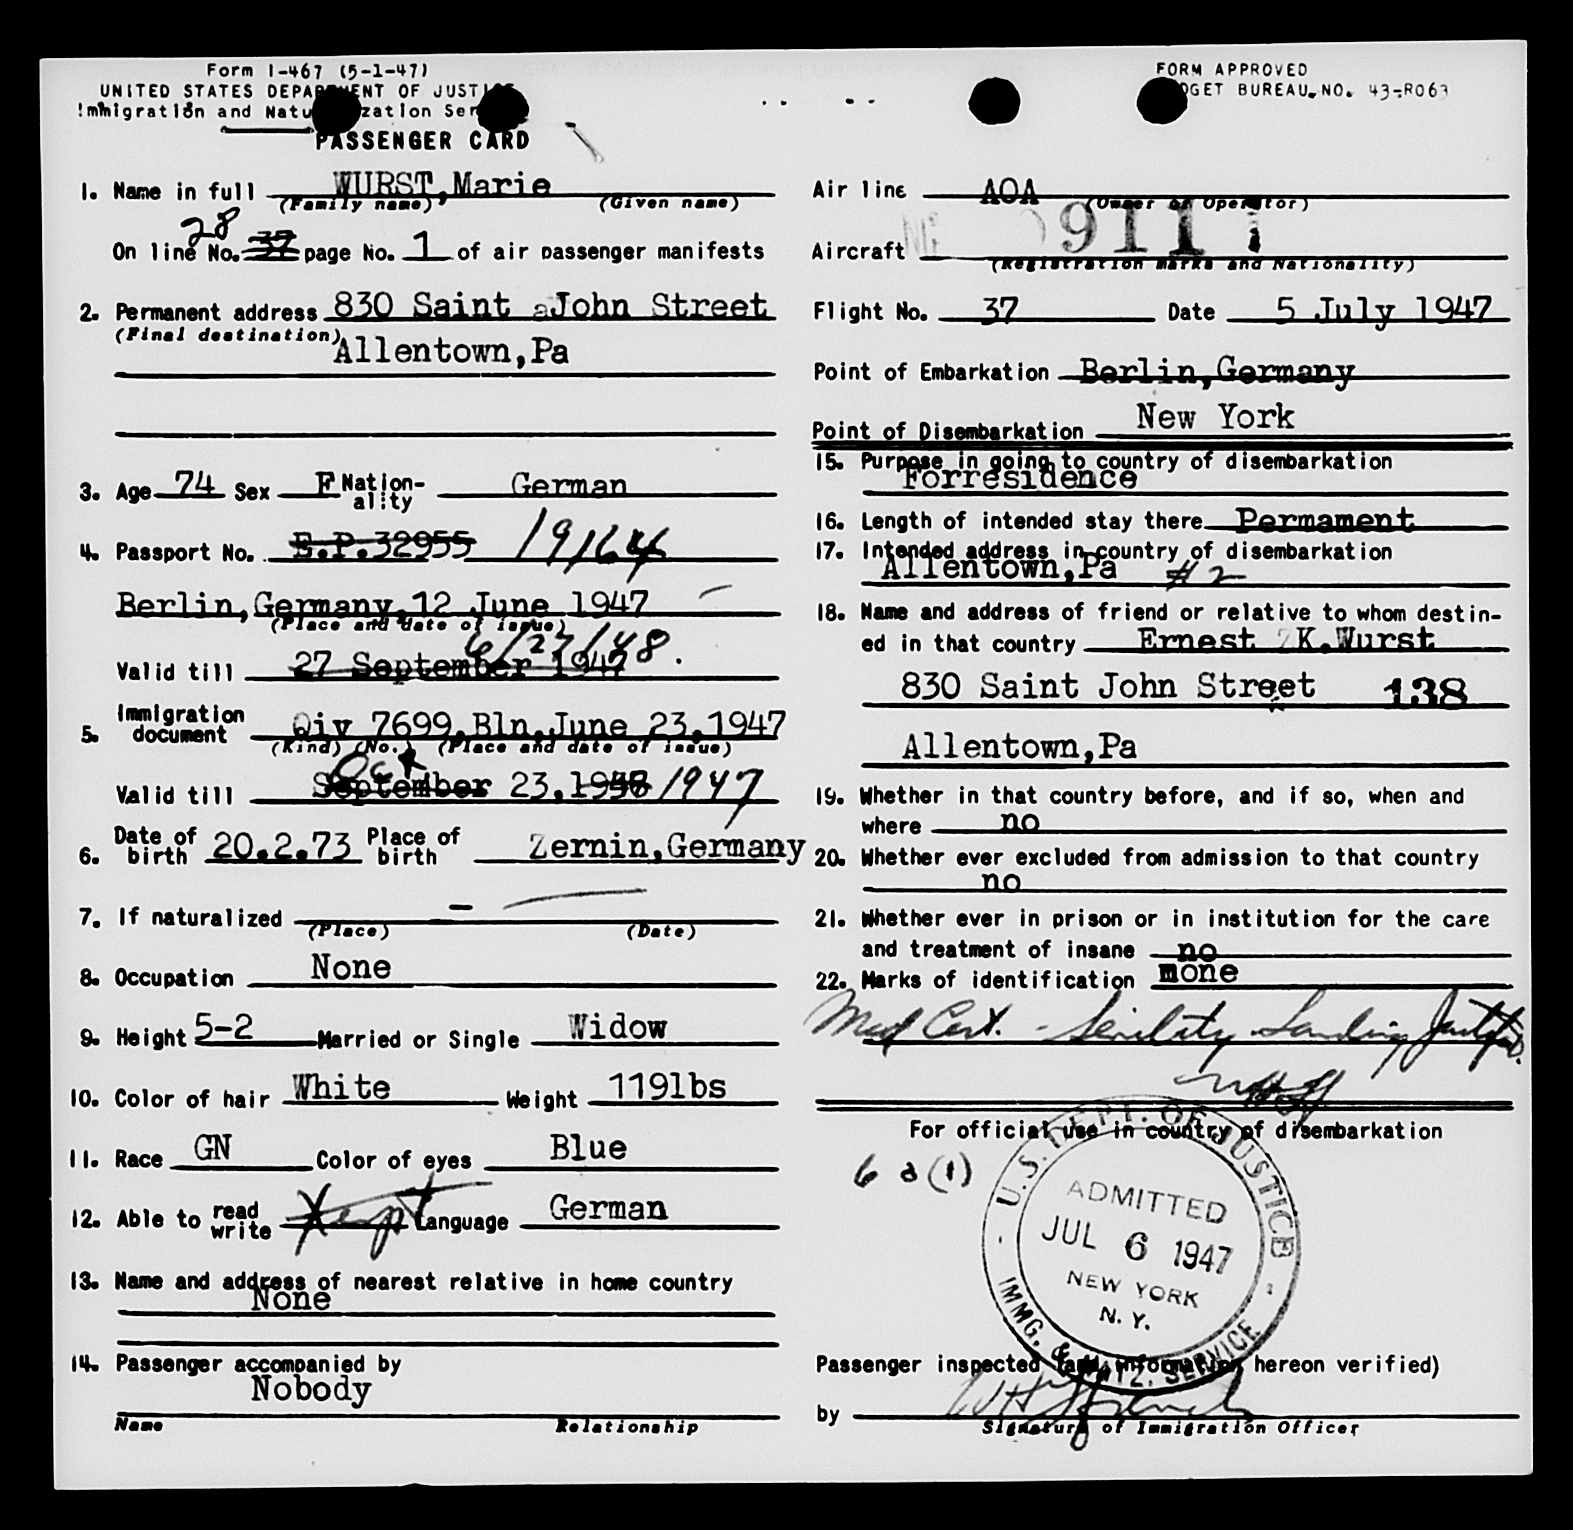 Form I-467 (5-1-47)
UNITED STATES DEPARTMENT OF JUSTICE
Immigration and Naturalization Ser
PASSENGER CARD
FORM APPROVED
DGET BUREAU NO. 43-R063
1. Name in full WURST,Marie
(Family name) (Given name)
On line No. 37 28 page No. 1 of air passenger manifests
2. Permanent address 830 Saint John Street
(Final destination)
Allentown,Pa
3. Age 74 Sex F Nation-ality German
4. Passport No. E.P.32955 19164
Berlin,Germany,12 June 1947
(Place and date of issue)
Valid till 27 September 1947 6/27/48.
5. Immigration document Qiv 7699,Bln,June 23,1947
(Kind) (No.) (Place and date of issue)
Valid till September Oct 23,1948 1947
6. Date of birth 20.2.73 Place of birth Zernin,Germany
7. If naturalized -
(Place) (Date)
8. Occupation None
9. Height 5-2 Married or Single Widow
10. Color of hair White Weight 119lbs
11. Race GN Color of eyes Blue
12. Able to read write Language German
13. Name and address of nearest relative in home country
None
14. Passenger accompanied by
Nobody
Name Relationship
Air line AOA
(Owner or Operator)
Aircraft 911
(Registration marks and Nationality)
Flight No. 37 Date 5 July 1947
Point of Embarkation Berlin,Germany
Point of Disembarkation New York
15. Purpose in going to country of disembarkation
Forresidence
16. Length of intended stay there Permament
17. Intended address in country of disembarkation
Allentown,Pa #2
18. Name and address of friend or relative to whom destin-
ed in that country Ernest K.Wurst
830 Saint John Street 138
Allentown,Pa
19. Whether in that country before, and if so, when and
where no
20. Whether ever excluded from admission to that country
no
21. Whether ever in prison or in institution for the care
and treatment of insane no
22. Marks of identification mone
Med Cert. - Senility Landing
For official use in country of disembarkation
6 a (1)
U.S. DEPT. OF JUSTICE
ADMITTED
JUL 6 1947
NEW YORK
N. Y.
IMMG. & NATZ. SERVICE
Passenger inspected (and information hereon verified)
by
Signature of Immigration Officer